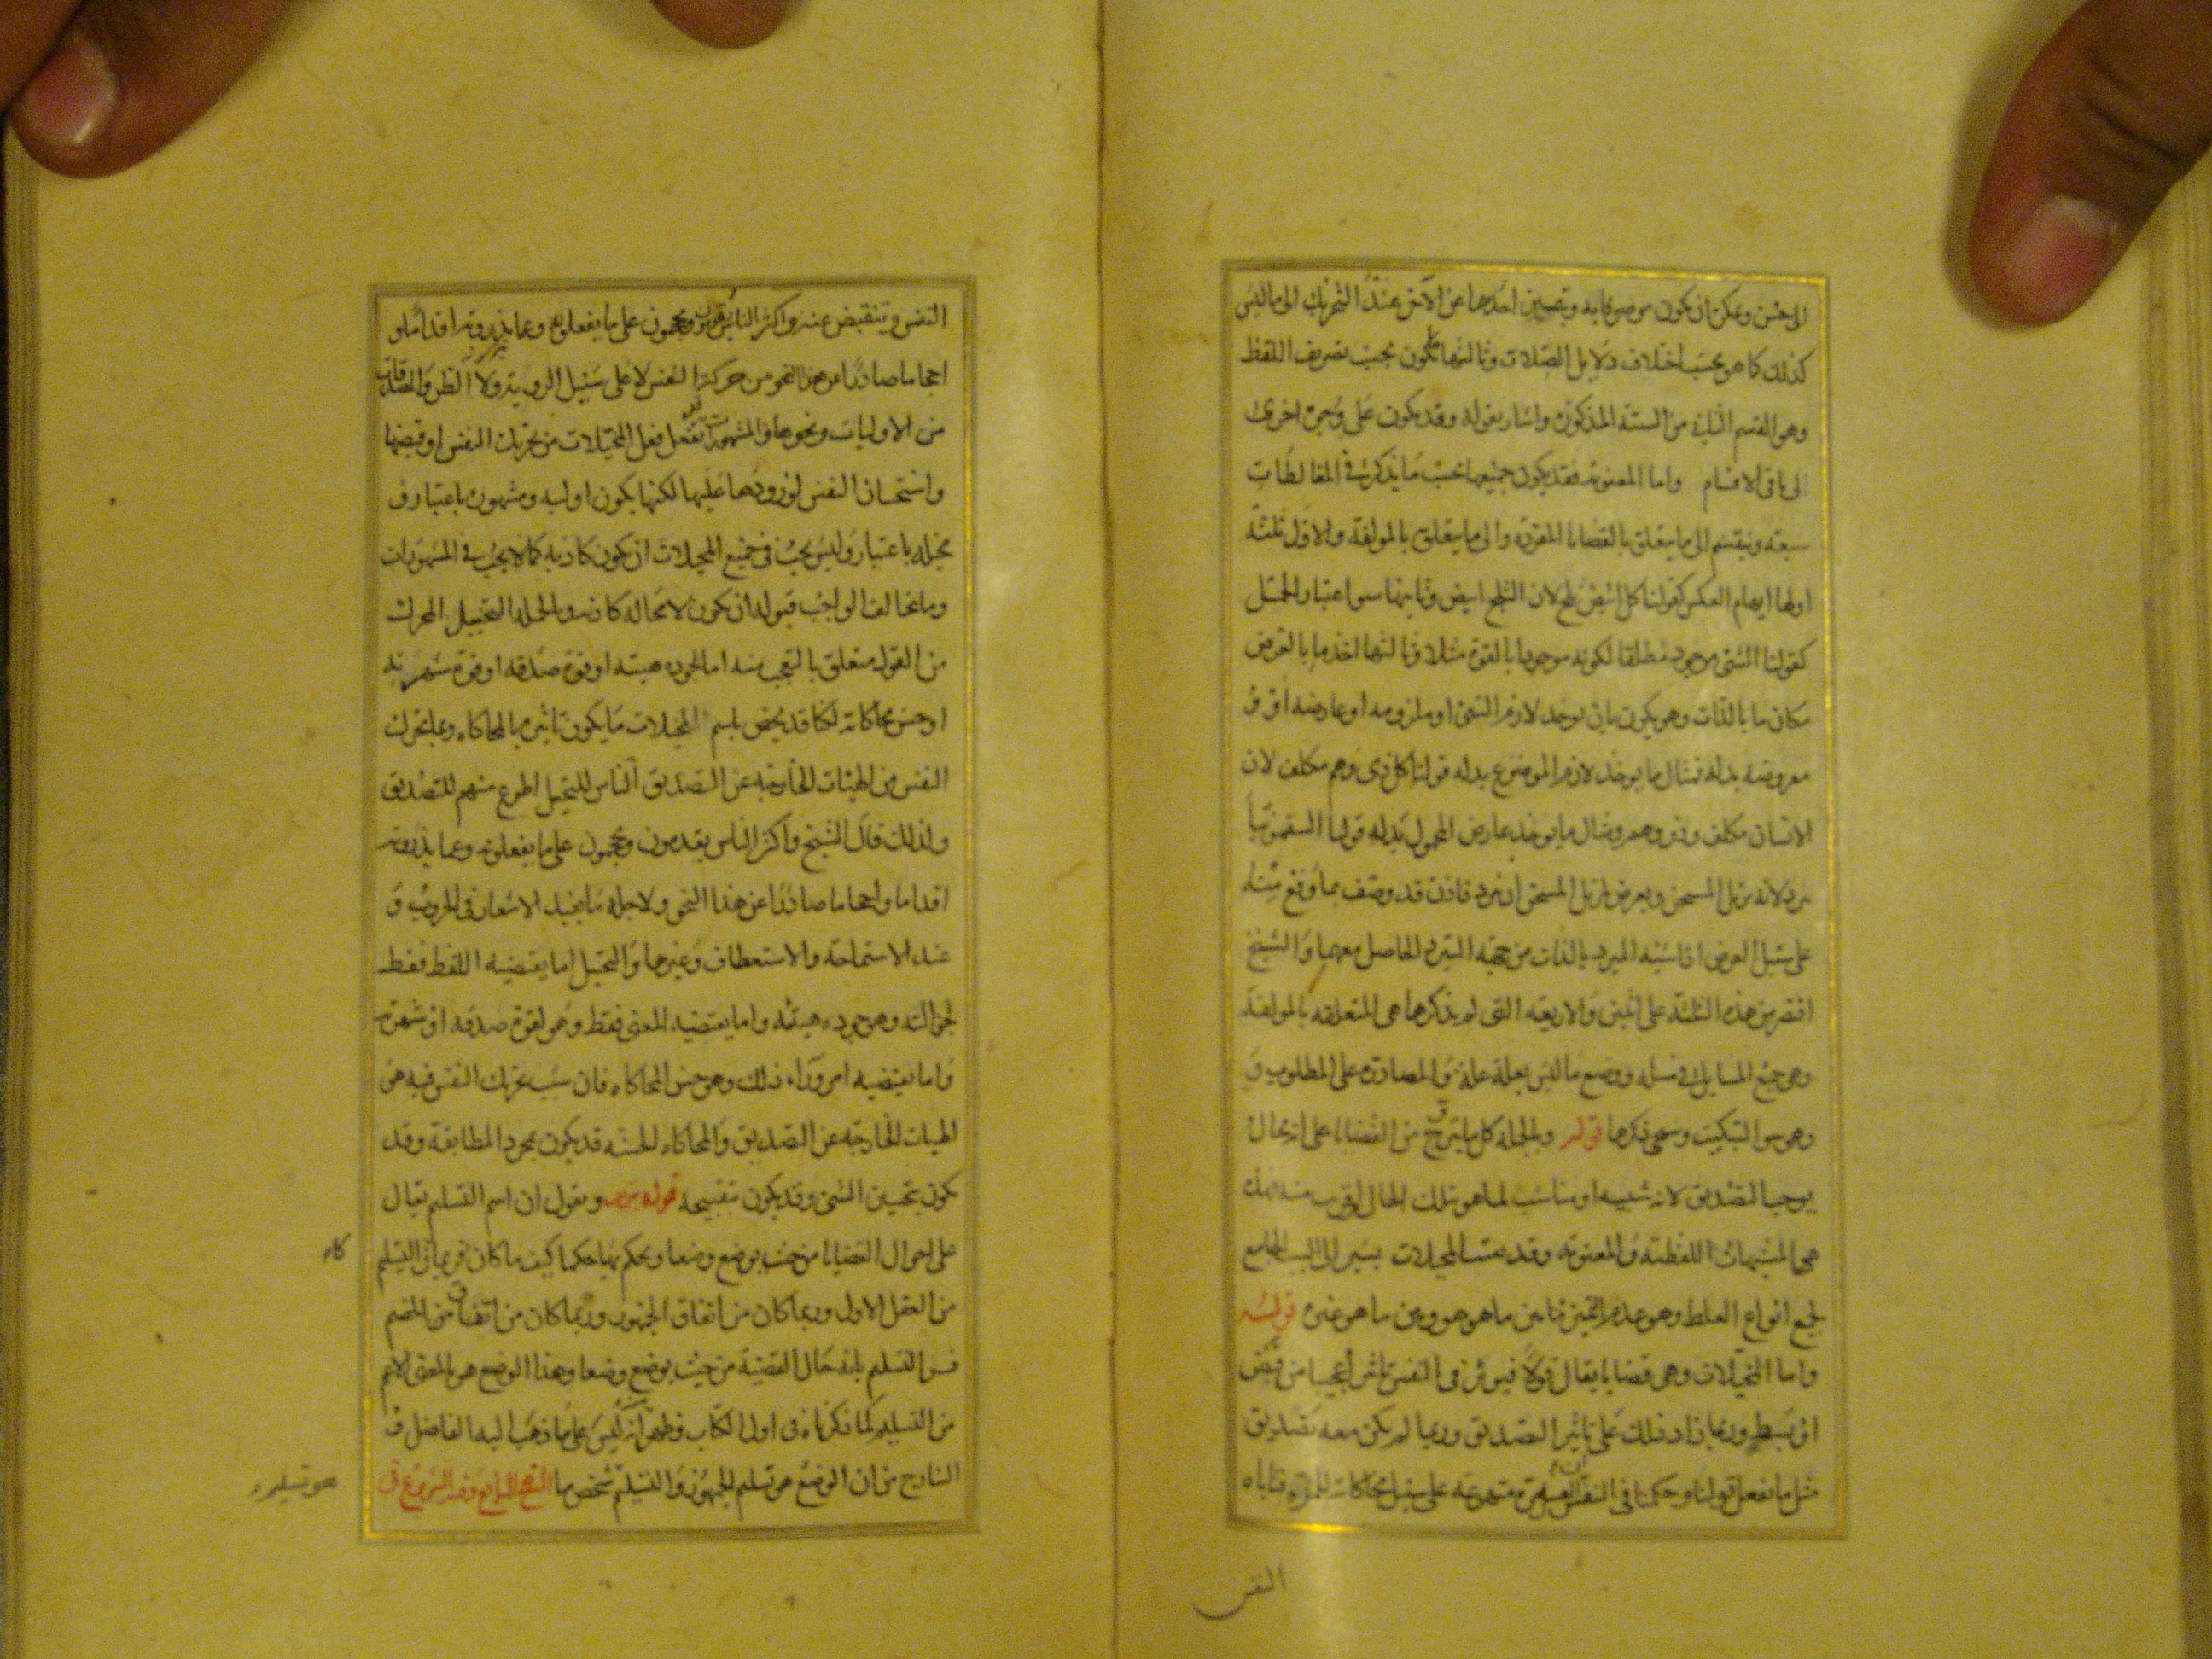 الى حسن ويمكن ان يكون موصوفا به وتعيين احدهما عن الآخر عند التحريك الى ما ليس
كذلك كما هو بحسب اختلاف دلايل الصلات وثالثها تكون بحسب تصريف اللفظ
وهو القسم الثالث من الستة المذكورة واشار بقوله وقد يكون على وجوه اخرى
الى باقى الاقسام واما المعنوية فقد يكون جميعها بحسب ما يذكر فى المغالطات
سبعة وينقسم الى ما يتعلق بالقضايا المفردة والى ما يتعلق بالمولفة والاول ثلثة
اولها ايهام العكس كقولنا كل ابيض ثلج لان الثلج ابيض وثانيها سوء اعتبار الحمل
كقولنا الشئ موجود مطلقا لكونه موجودا بالقوة مثلا وثالثها اخذ ما بالعرض
مكان ما بالذات وهو يكون بان يوخذ لازم الشئ او ملزومه او عارضه او
معروضه بدله فمثال ما يوخذ لازم الموضوع بدله قولنا كل ذى وهم مكلف لان
الانسان مكلف وذو وهم ومثال ما يوخذ عارض المحمول بدله قولنا السقمونيا
مبرد لانه يزيل المسخن ويعرض لمزيل المسخن ان يبرد فاذن قد وصف بما وقع منه
على سبيل العرض اذا شبه المبرد بالذات من جهة التبرد الحاصل معهما والشيخ
اقتصر من هذه الثلثة على اثنين والاربعة التى لم يذكرها هى المتعلقة بالمولفة
وهى جمع المسايل فى مسلة ووضع ما ليس بعلة علة والمصادرة على المطلوب و
وهو سوء التبكيت وسيجئ ذكرها قوله وبالجملة كل ما يتروج من القضايا على انه بحال
يوجب التصديق لانه شبيه او مناسب لما هو بتلك الحال او قريب منه فهذه
هى المشبهات اللفظية والمعنوية وقد بقيت المخيلات يشير الى السبب الجامع
لجميع انواع الغلط وهو عدم التمييز ما بين ما هو هو وبين ما هو غيره قوله
واما المخيلات وهى قضايا يقال قولا فيوثر فى النفس تاثيرا عجيبا من قبض
او بسط وربما زاد ذلك على تاثير التصديق وربما لم يكن معه تصديق
مثل ما يفعل قولنا وحكمنا فى النفس ان العسل مرة متهوعة على سبيل محاكاته للمرة فتاباه
النفس
النفس وتنقبض عنه واكثر الناس يقدمون ويحجمون على ما يفعلونه وعما يذرونه اقداما و
احجاما صادرا عن هذا النحو من حركة النفس لا على سبيل الروية ولا الظن والمصدقات
من الاوليات ونحوها والمشهورات قد تفعل فعل المخيلات من تحريك النفس او قبضها
واستحسان النفس لورودها عليها لكنها يكون اولية ومشهورة باعتبار و
مخيلة باعتبار وليس يجب فى جميع المخيلات ان يكون كاذبة كما لا يجب فى المشهورات
وما يخالف الواجب قبوله ان يكون لا محالة كاذبة وبالجملة التخييل المحرك
من القول متعلق بالتعجب منه اما لجودة هيئته او قوة صدقه او قوة شهرته
او حسن محاكاته لكنا قد نخص باسم المخيلات ما يكون تاثيره بالمحاكاة وما يحرك
النفس من الهيئات الخارجة عن التصديق الناس للتخيل اطوع منهم للتصديق
ولذلك قال الشيخ واكثر الناس يقدمون ويحجمون على ما يفعلونه وعما يذرونه
اقداما واحجاما صادرا عن هذا النحو ولاجله ما يفيد الاشعار فى الحروب و
عند الاستماحة والاستعطاف وغيرها والتخيل اما يقتضيه اللفظ فقط
لجزالته وهو جودة هيئته واما يقتضيه المعنى فقط وهو لقوة صدقه او شهرته
واما يقتضيه امر وراء ذلك وهو حسن المحاكاة فان سبب تحريك النفس فيه هو
الهيئات الخارجة عن التصديق والمحاكاة الحسنة قد يكون بمجرد المطابقة وقد
يكون بتحسين الشئ وقد يكون بتقبيحه قوله ونقول ان اسم التسليم يقال
على احوال القضايا من حيث يوضع وضعا ويحكم بها حكما كيف ما كان فربما كان التسليم
كان
من العقل الاول وربما كان من اتفاق الجمهور وربما كان من اتصاف من الخصم
فسر التسليم بانه حال القضية من حيث يوضع وضعا وهذا الوضع هو بالمعنى الاعم
من التسليم كما ذكرناه فى اول الكتاب وظهر انه ليس على ما ذهب اليه الفاضل
الشارح من ان الوضع هو تسليم الجمهور والتسليم شخص ما النهج الرابع وفيه الشروع فى
هو تسليم